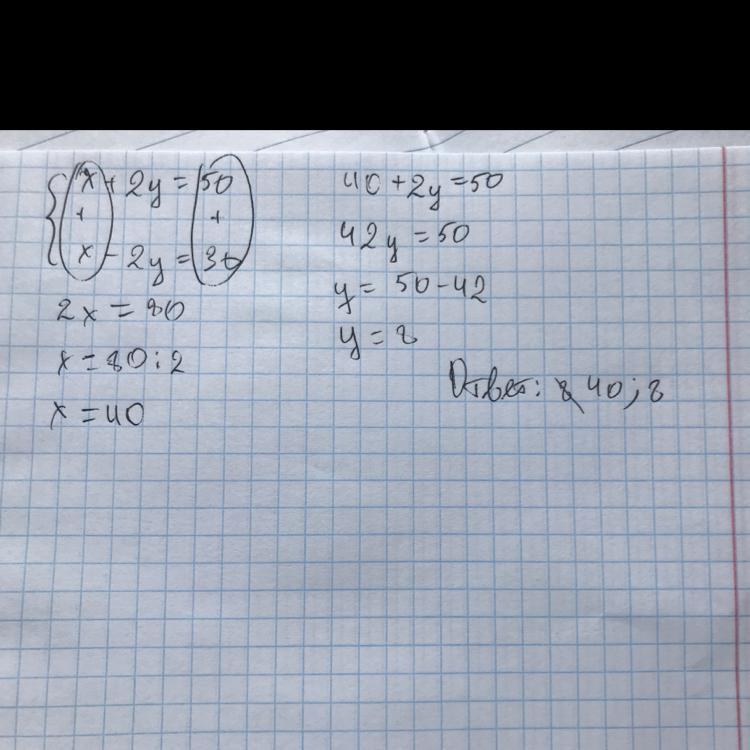 x + 2y = 50
+ +
x - 2y = 30
2x = 80
x = 80 : 2
x = 40
40 + 2y = 50
42y = 50
y = 50 - 42
y = 8
Ответ: 8 40 ; 8